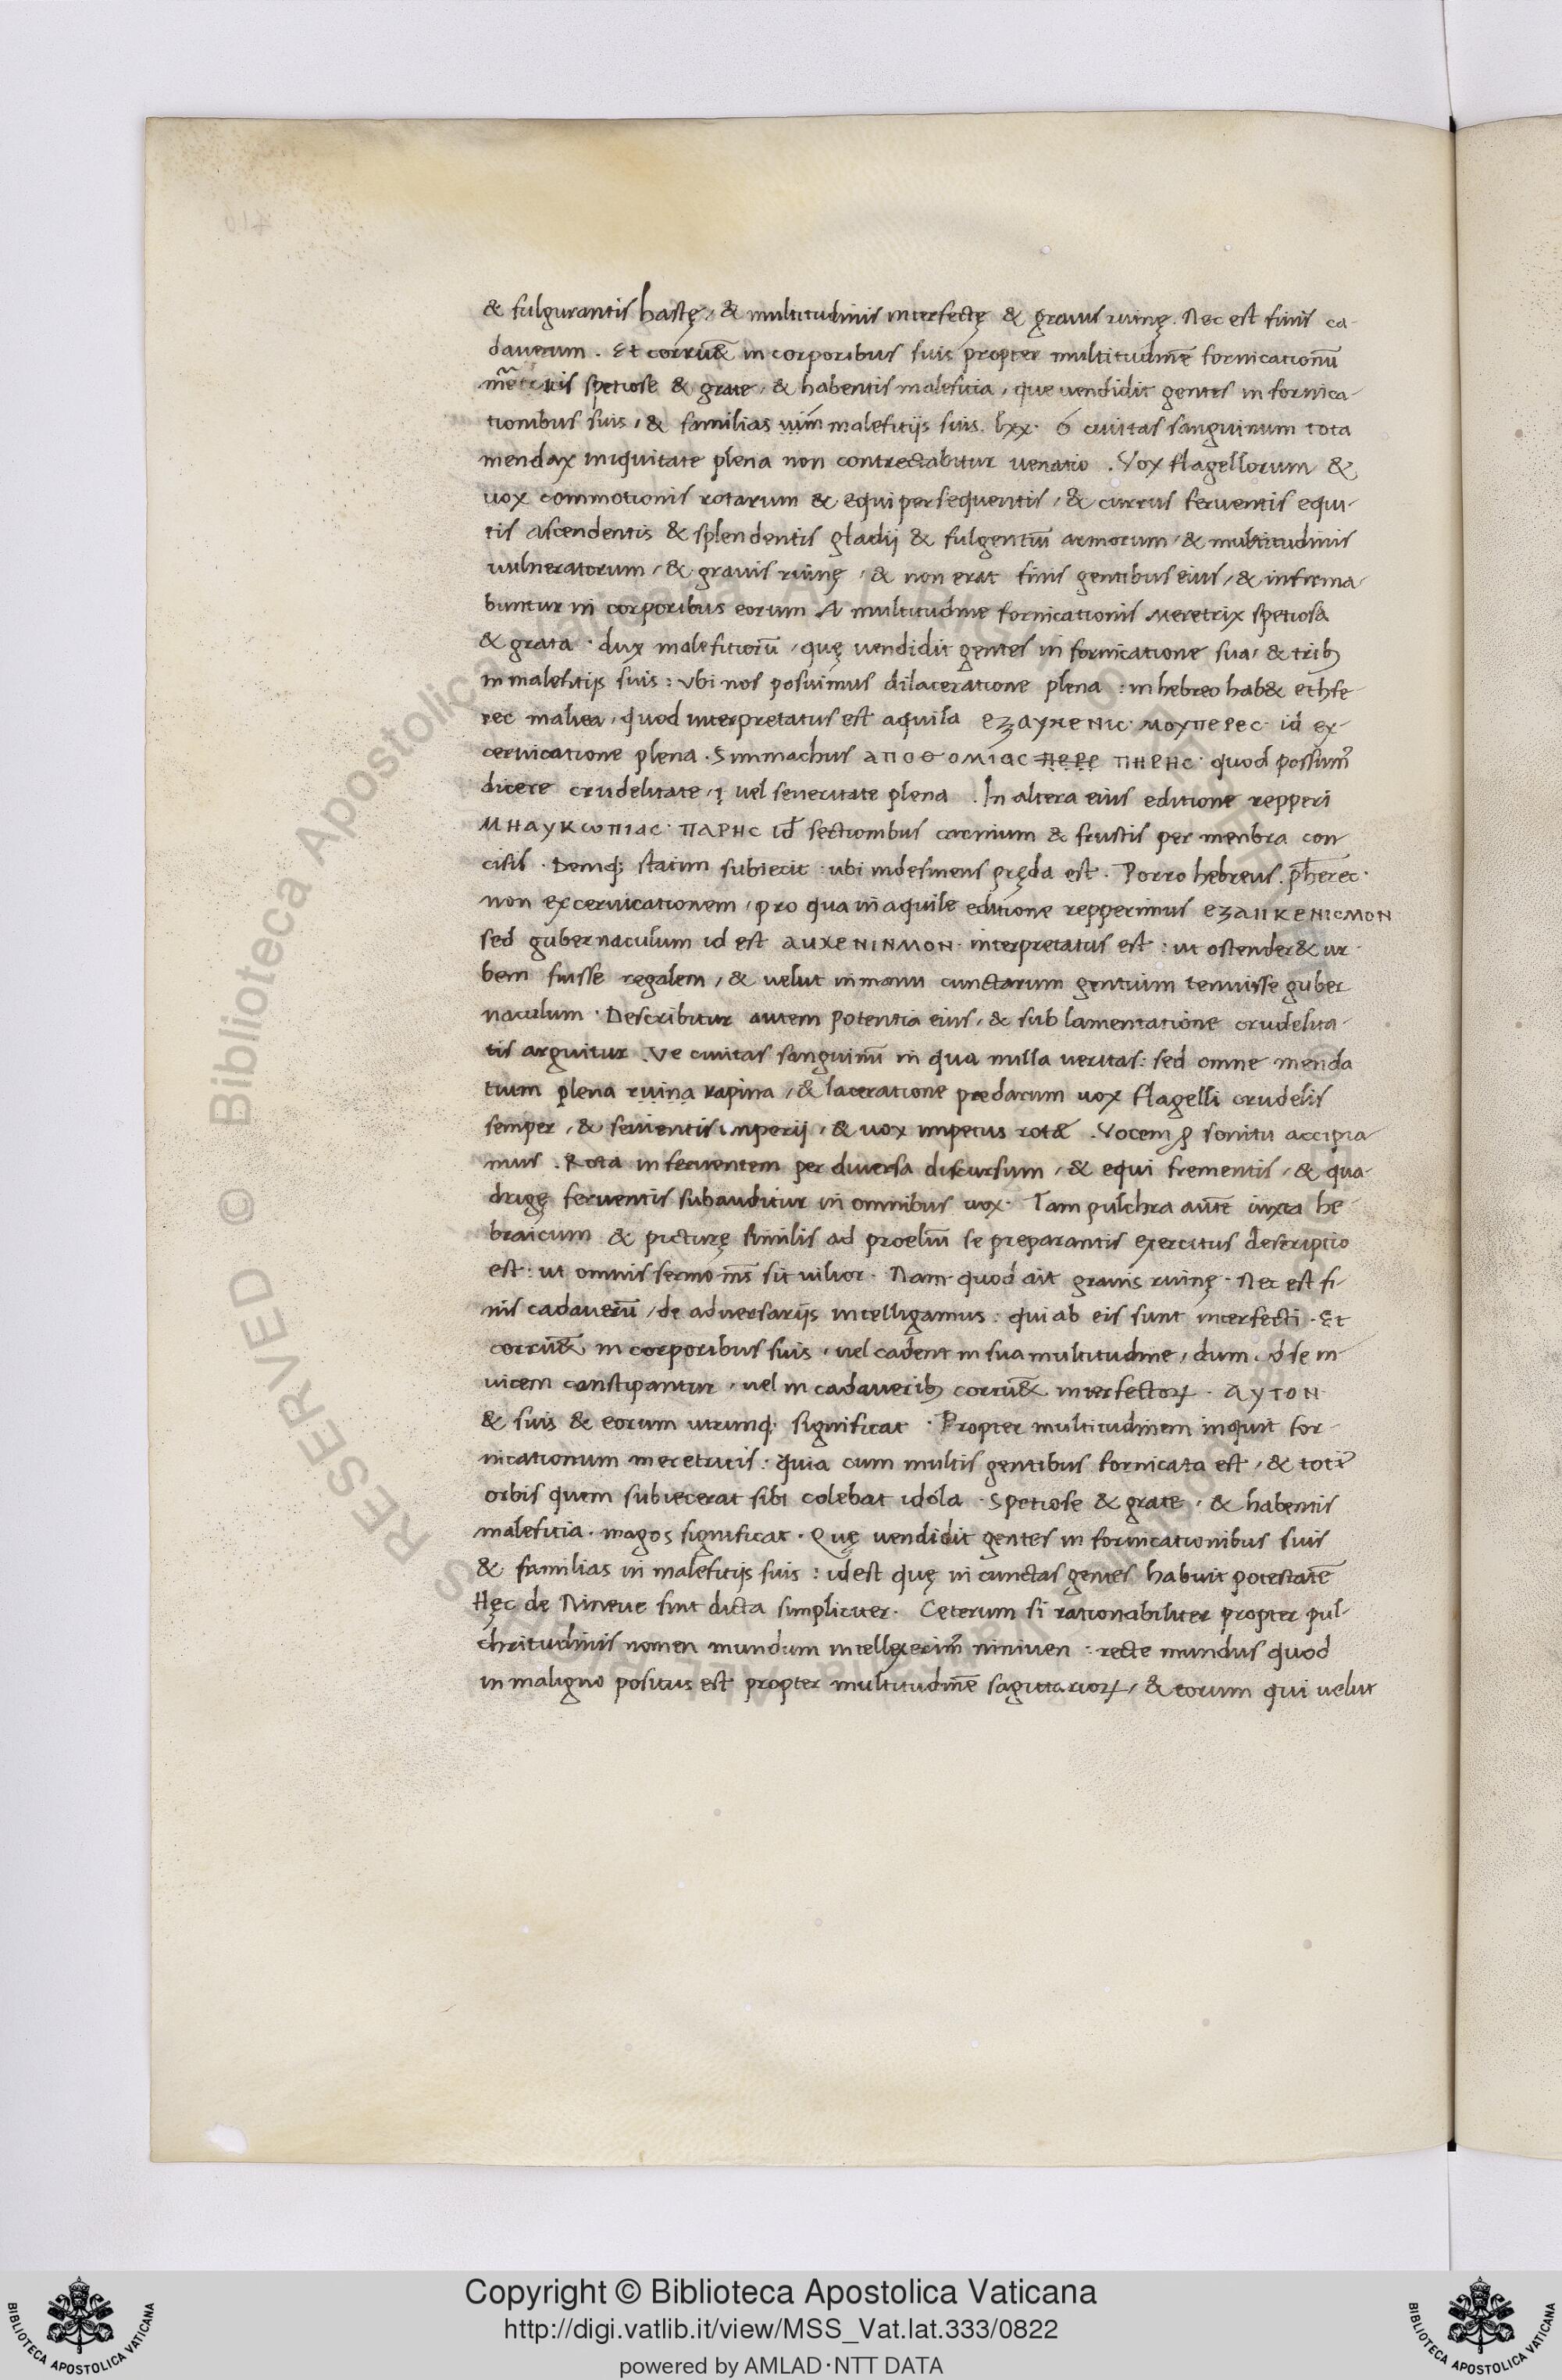 & fulgurantis hastę, & multitudinis interfectę & grauis ruinę. Nec est finis ca-
dauerum. Et corruē& in corporibus suis propter multitudinē fornicationū
mētricis spetiose & grate, & habentis malefitia, que uendidit gentes in fornica-
tionibus suis, & familias malefitijs suis. lxx. ó ciuitas sanguinum tota
mendax iniquitate plena non contrectabitur uenatio. Vox flagellorum &
uox commotionis rotarum & equi persequentis, & currus feruentis equi-
tis ascendentis & splendentis gladij & fulgentiū armorum, & multitudinis
uulneratorum, & grauis ruinę, & non erat finis gentibus eius, & infirma-
buntur in corporibus eorum A multitudine fornicationis Meretrix spetiosa
& grata. dux malefitiorū, quę uendidit gentes in fornicatione sua, & trib;
in malefitijs suis: Vbi nos posuimus dilaceratione plena: in hebreo hab& ethfe-
rec malea, quod interpretatus est aquila ΕΖΑΥΧΕΝΙC· ΜΟΥΠΕΡΕC· id ex-
ceruicatione plena. Simmachus ΑΠΟΘΟΜΙΑC ΠΕΡΕ ΠΗΡΗC· quod possum'
dicere crudelitate, uel seueritate plena. In altera eius editione repperi
ΜΗΑΥΚωΠΙΑC· ΠΑΡΗC id sectionibus carnium & frustis per menbra con
cisis. Deniq; statim subiecit: ubi indesinens pręda est. Porro hebreus. pherec.
non exceruicationem, pro qua in aquile editione repperimus ΕΖΑΠΚΕΝΙCΜΟΝ
sed gubernaculum id est ΑΥΧΕΝΙΝΜΟΝ· interpretatus est: ut ostender& ur-
bem fuisse regalem, & uelut in manu cunctarum gentium tenuisse guber
naculum. Describitur autem potentia eius, & sub lamentatione crudelita-
tis arguitur. Ve ciuitas sanguinū in qua nulla ueritas: sed omne menda
tium plena ruina rapina, & laceratione predarum uox flagelli crudelis
semper, & seuientis imperij, & uox impetus rotæ. Vocem ꝓ sonitu accipia-
mus. Rota in feruentem per diuersa discursum, & equi frementis, & qua-
drigę feruentis subauditur in omnibus uox. Tam pulchra autē iuxta he-
braicum & picturę similis ad proeliū se preparantis exercitus descriptio
est: ut omnis sermo ms̄ sit uilior. Nam quod ait grauis ruinę. Nec est fi-
nis cadauerū, de aduersarijs intelligamus: qui ab eis sunt interfecti. Et
corruē& in corporibus suis, uel cadent in sua multitudine, dum d se in-
uicem constipantur, uel in cadauerib; corruē& interfectoꝝ. ΑΥΤΟΝ
& suis & eorum utrunq; significat. Propter multitudinem inquit for-
nicationum meretricis: quia cum multis gentibus fornicata est, & toti'
orbis quem subiecerat sibi colebat idola. Spetiose & grate, & habentis
malefitia. magos significat. Quę uendidit gentes in fornicationibus suis
& familias in malefitijs suis: id est quę in cunctas gentes habuit potestatē
Hęc de Nineue sint dicta simpliciter. Ceterum si rationabiliter propter pul-
chritudinis nomen mundum intellexerim' niniuen: recte mundus quod
in maligno positus est propter multitudinē sagittarioꝝ, & eorum qui uelut
Copyright © Biblioteca Apostolica Vaticana
http://digi.vatlib.it/view/MSS_Vat.lat.333/0822
powered by AMLAD·NTT DATA